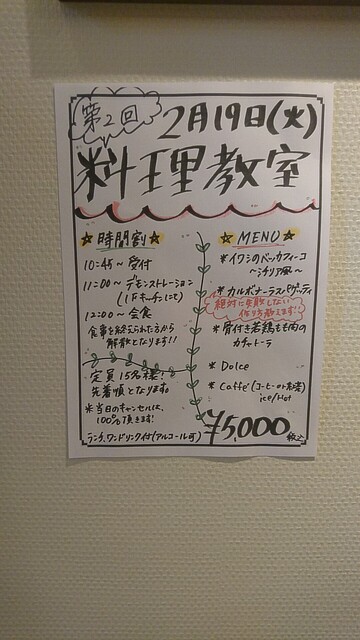 第2回
2月19日(火)
料理教室
☆時間割☆
10:45〜 受付
11:00〜 デモンストレーション
(1Fキッチンにて)
12:00〜 会食
食事を終えられた方から
解散となります!!
定員15名様!
先着順となります。
※当日のキャンセルは、
100%頂きます!
ランチ、ワンドリンク付(アルコール可)
☆MENU☆
*イワシのベッカフィーコ
〜シチリア風〜
*カルボナーラスパゲッティ
絶対に失敗しない
作り方教えます!
*骨付き若鶏もも肉の
カチャトーラ
*Dolce
*Caffé(コーヒーor紅茶)
ice/Hot
¥5,000税込